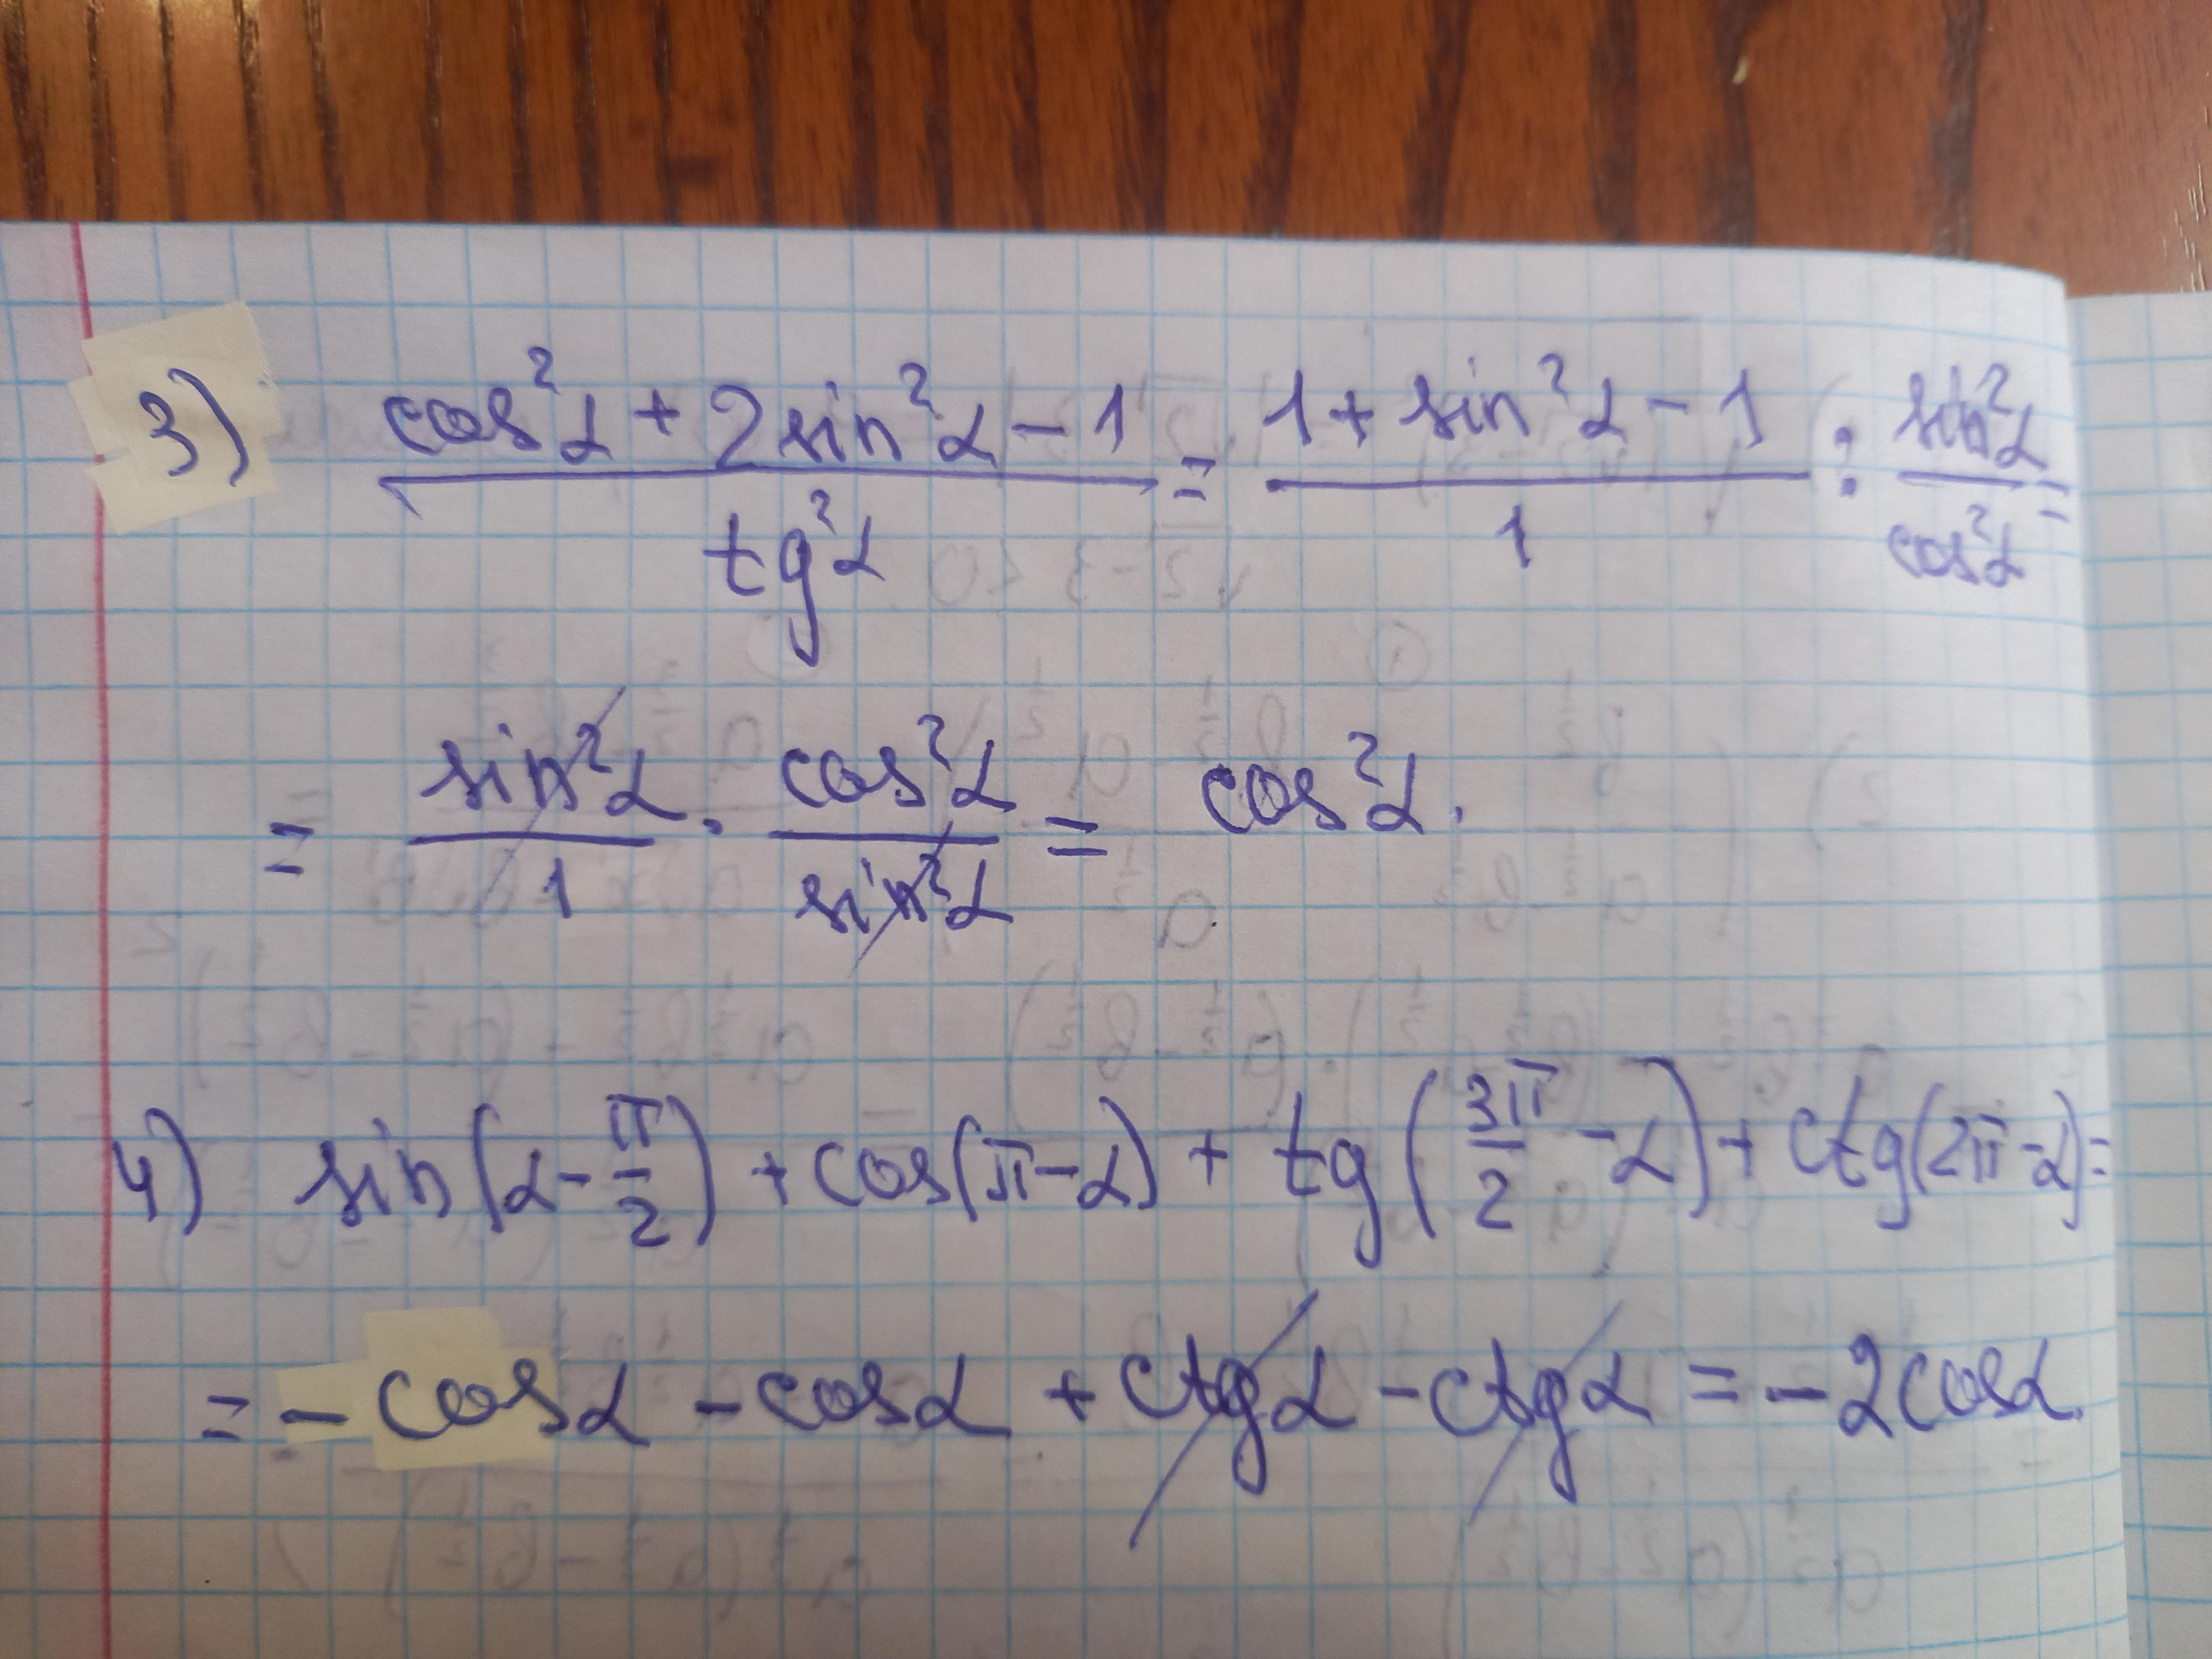 3) (cos²α + 2sin²α - 1)/(tg²α) = (1 + sin²α - 1)/1 : sin²α/cos²α =
= sin²α/1 · cos²α/sin²α = cos²α.
4) sin(α - π/2) + cos(π - α) + tg(3π/2 - α) + ctg(2π - α) =
= - cosα - cosα + ctgα - ctgα = -2cosα